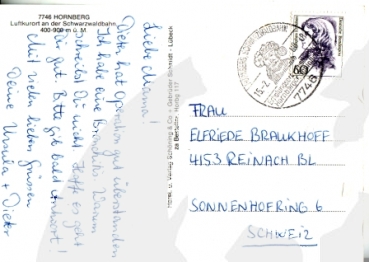 7746 HORNBERG
Luftkurort an der Schwarzwaldbahn
400-900 m ü. M.
Liebe Mama!
Dieter hat Operation gut überstanden
Ich habe eine Bronchitis. Warum
schreibst Du nicht. Hoffe es geht
Dir gut. Bitte gib bald Antwort!
Mit vielen lieben Grüssen
Deine Ursula + Dieter
Schöning & Co + Gebrüder Schmidt - Lübeck
60
7746
FRAU
ELFRIEDE BRAUKHOFF
4153 REINACH BL
SONNENHOFRING 6
SCHWEIZ